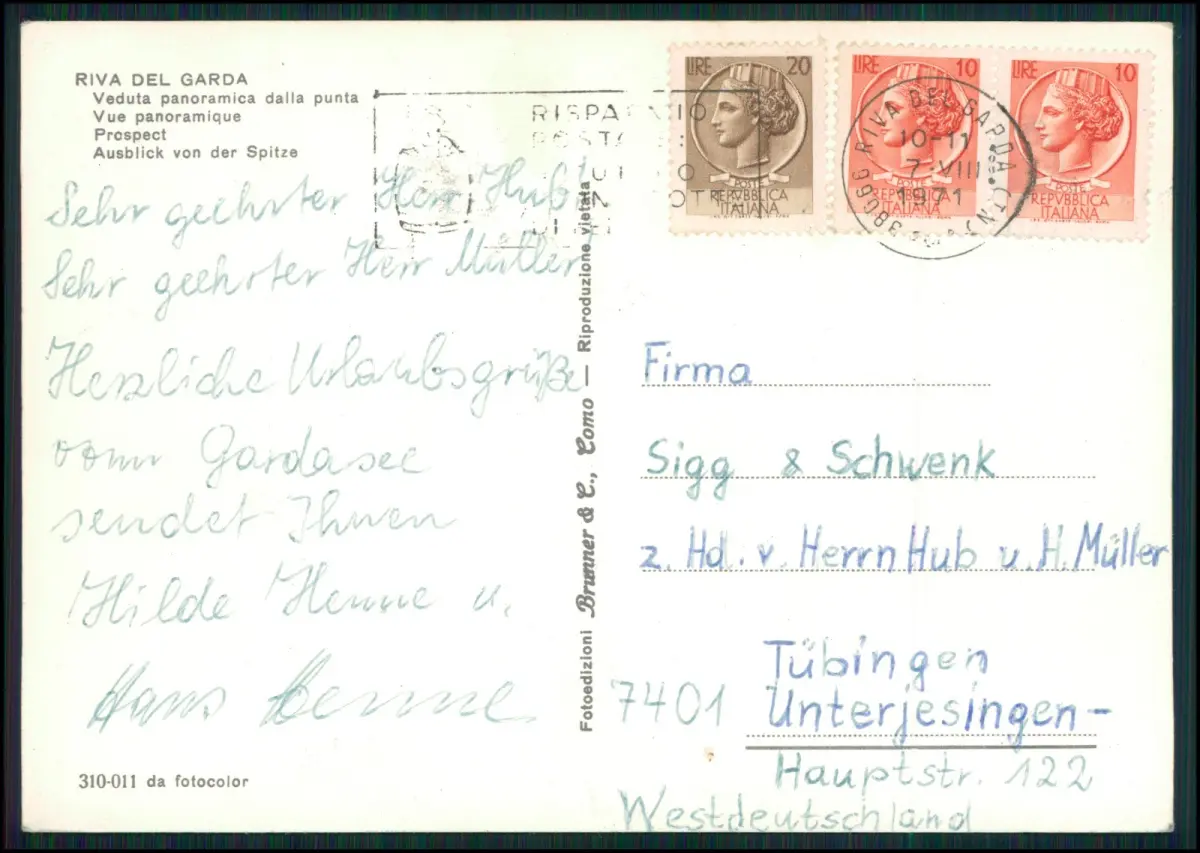 RIVA DEL GARDA
Veduta panoramica dalla punta
Vue panoramique
Prospect
Ausblick von der Spitze
Sehr geehrter Herr Hub!
Sehr geehrter Herr Müller
Herzliche Urlaubsgrüße
vom Gardasee
sendet Ihnen
Hilde Henne u.
Hans Henne
310-011 da fotocolor
Fotoedizioni Brunner & C., Como — Riproduzione vietata
RISPARMIO
POSTA
LIRE 20
POSTE
REPVBBLICA
ITALIANA
LIRE 10
POSTE
REPVBBLICA
ITALIANA
LIRE 10
POSTE
REPVBBLICA
ITALIANA
38066 RIVA DEL GARDA (TN)
10-11
7·VIII
1971
Firma
Sigg & Schwenk
z. Hd. v. Herrn Hub u. H. Müller
Tübingen
7401 Unterjesingen-
Hauptstr. 122
Westdeutschland